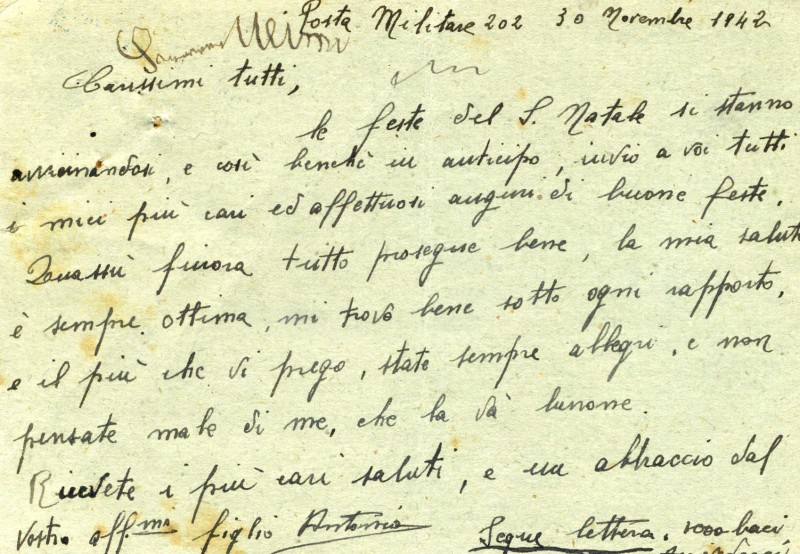 Posta Militare 202 30 Novembre 1942
Carissimi tutti,
le feste del S. Natale si stanno
avvicinandosi, e così benchè in anticipo, invio a voi tutti
i miei più cari ed affettuosi auguri di buone feste.
Quassù finora tutto prosegue bene, la mia salute
è sempre ottima, mi trovo bene sotto ogni rapporto,
e il più che vi prego, state sempre allegri, e non
pensate male di me, che la và benone.
Ricevete i più cari saluti, e un abbraccio dal
vostro aff.mo figlio Antonio Segue lettera. 1000 baci